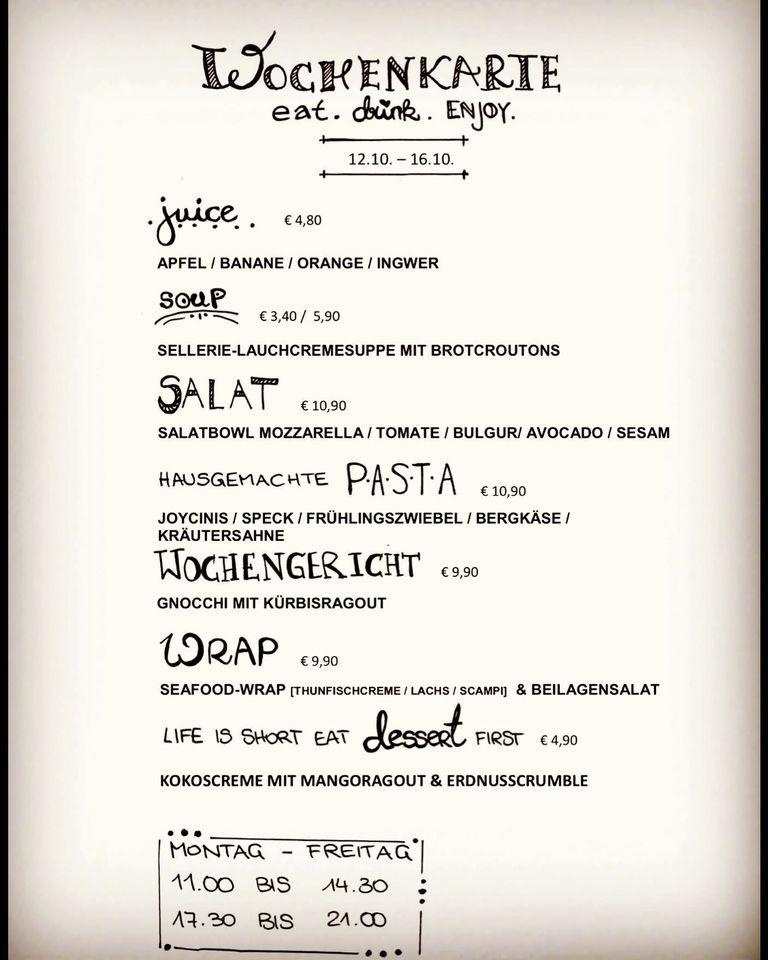 WOCHENKARTE
eat. drink. ENJOY.
12.10. – 16.10.
.juice. € 4,80
APFEL / BANANE / ORANGE / INGWER
SOUP € 3,40 / 5,90
SELLERIE-LAUCHCREMESUPPE MIT BROTCROUTONS
SALAT € 10,90
SALATBOWL MOZZARELLA / TOMATE / BULGUR/ AVOCADO / SESAM
HAUSGEMACHTE P.A.S.T.A € 10,90
JOYCINIS / SPECK / FRÜHLINGSZWIEBEL / BERGKÄSE /
KRÄUTERSAHNE
WOCHENGERICHT € 9,90
GNOCCHI MIT KÜRBISRAGOUT
WRAP € 9,90
SEAFOOD-WRAP [THUNFISCHCREME / LACHS / SCAMPI] & BEILAGENSALAT
LIFE IS SHORT EAT dessert FIRST € 4,90
KOKOSCREME MIT MANGORAGOUT & ERDNUSSCRUMBLE
MONTAG - FREITAG
11.00 BIS 14.30
17.30 BIS 21.00